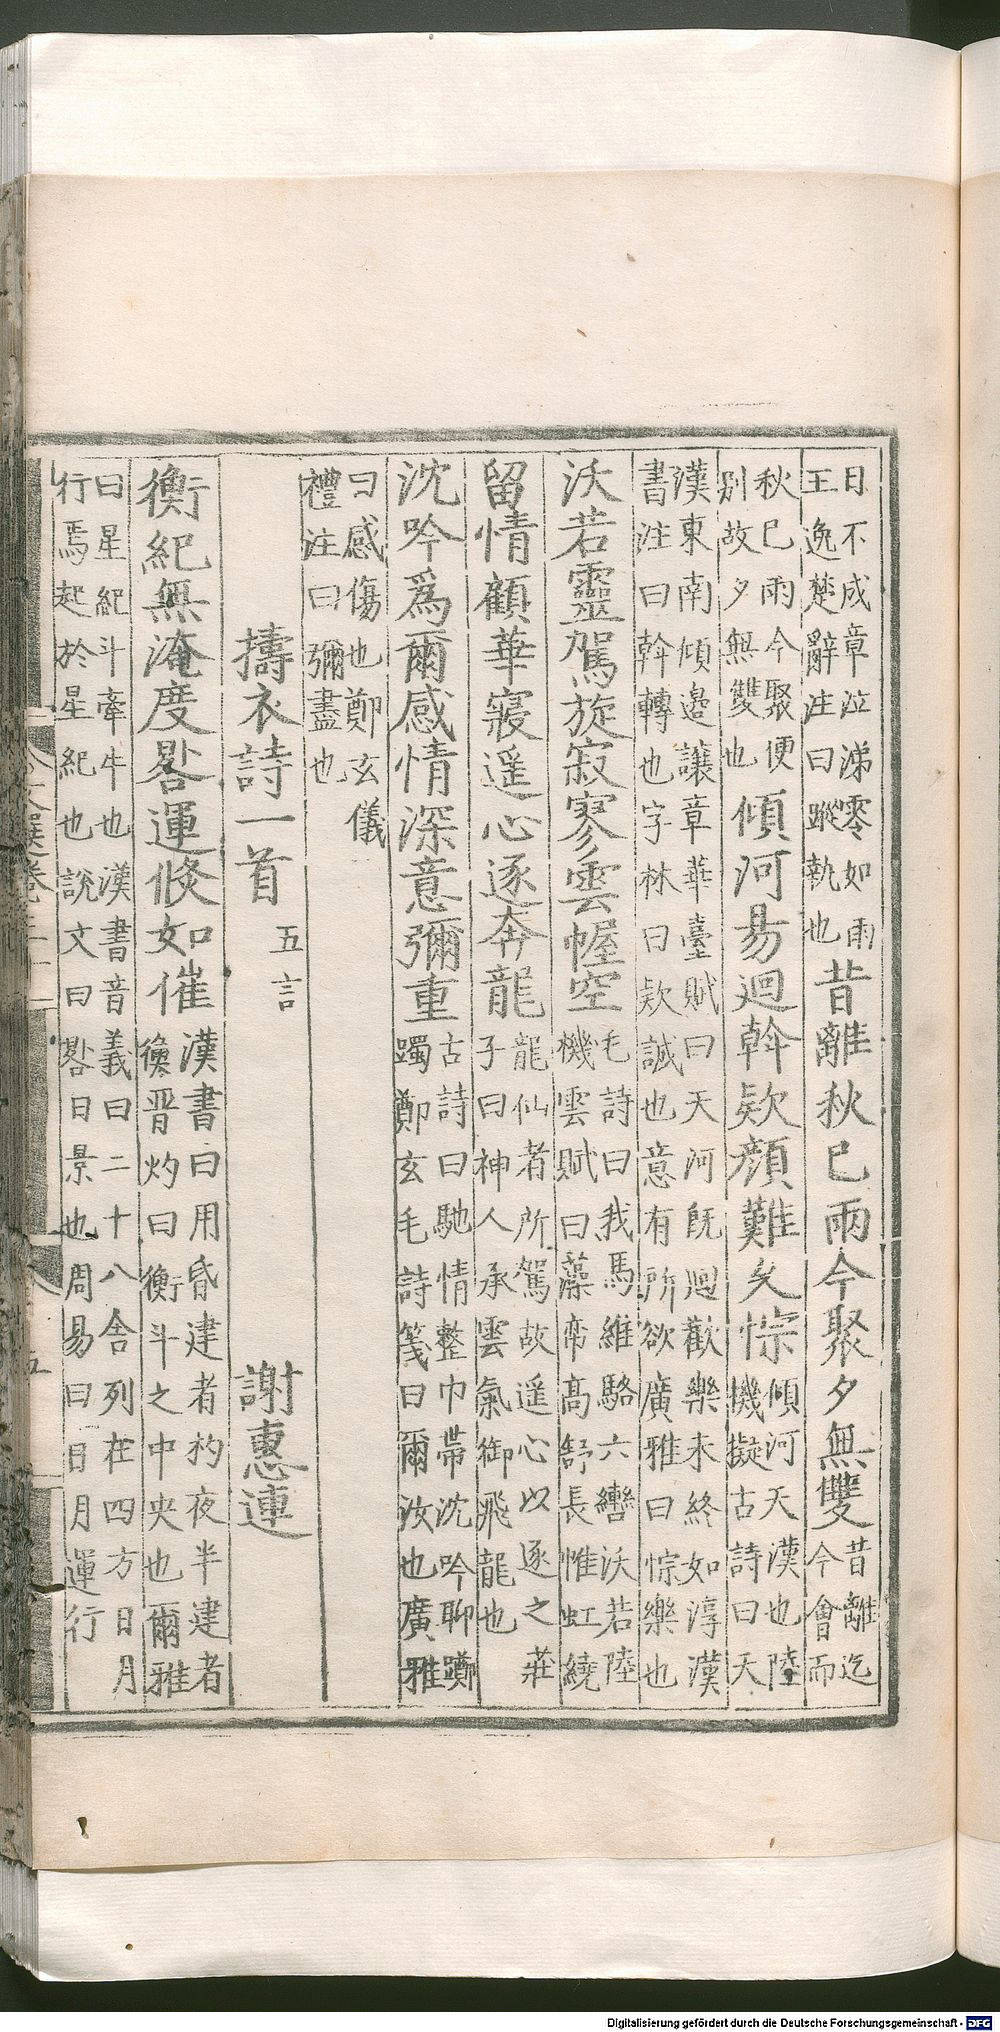 日不成章泣涕零如雨
王逸楚辭注曰蹤執也
昔離秋已兩今聚夕無雙
昔離迄
今會而
秋已雨今聚便
別故夕無雙也
傾河易迴斡欵顏難久悰
傾河天漢也陸
機擬古詩曰天
漢東南傾邉讓章華臺賦曰天河旣迴歡樂未終如淳漢
書注曰斡轉也字林曰欵誠也意有所欲廣雅曰悰樂也
沃若靈駕旋寂寥雲幄空
毛詩曰我馬維駱六轡沃若陸
機雲賦曰藻帟高舒長帷虹繞
留情顧華寢遥心逐奔龍
龍仙者所駕故遥心以逐之莊
子曰神人承雲氣御飛龍也
沈吟爲爾感情深意彌重
古詩曰馳情整巾帶沈吟聊躑
躅鄭玄毛詩箋曰爾汝也廣雅
曰感傷也鄭玄儀
禮注曰彌盡也
擣衣詩一首 五言 謝惠連
衡紀無淹度晷運倐如催
漢書曰用昏建者杓夜半建者
衡晋灼曰衡斗之中央也爾雅
曰星紀斗牽牛也漢書音義曰二十八舍列在四方日月
行焉起於星紀也說文曰晷日景也周易曰日月運行
Digitalisierung gefördert durch die Deutsche Forschungsgemeinschaft - DFG